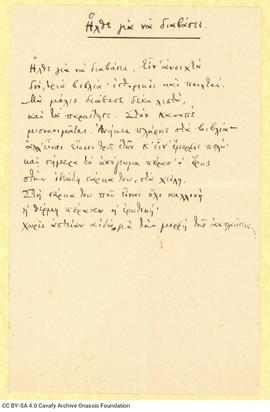 Ἦλθε γιὰ νὰ διαβάσει.
Ἦλθε γιὰ νὰ διαβάσει. Εἶν' ἀνοιχτὰ
δυό, τρία βιβλία· ἱστορικοὶ καὶ ποιηταί.
Μὰ μόλις διάβασε δέκα λεπτά,
καὶ τὰ παραίτησε. Στὸν καναπὲ
μισοκοιμᾶται. Ἀνήκει πλήρως στὰ βιβλία—
ἀλλ' εἶναι εἴκοσι τριῶ ἐτῶν κ' εἶν' ἔμορφος πολύ·
καὶ σήμερα τὸ ἀπόγευμα πέρασ' ὁ ἔρως
στὴν ἰδεώδη σάρκα του, στὰ χείλη.
Στὴ σάρκα του ποῦ εἶναι ὅλο καλλονὴ
ἡ θέρμη πέρασεν ἡ ἐρωτική·
χωρὶς ἀστείαν αἰδῶ γιὰ τὴν μορφὴ τῆς ἀπολαύσεως
CC BY-SA 4.0 Cavafy Archive Onassis Foundation